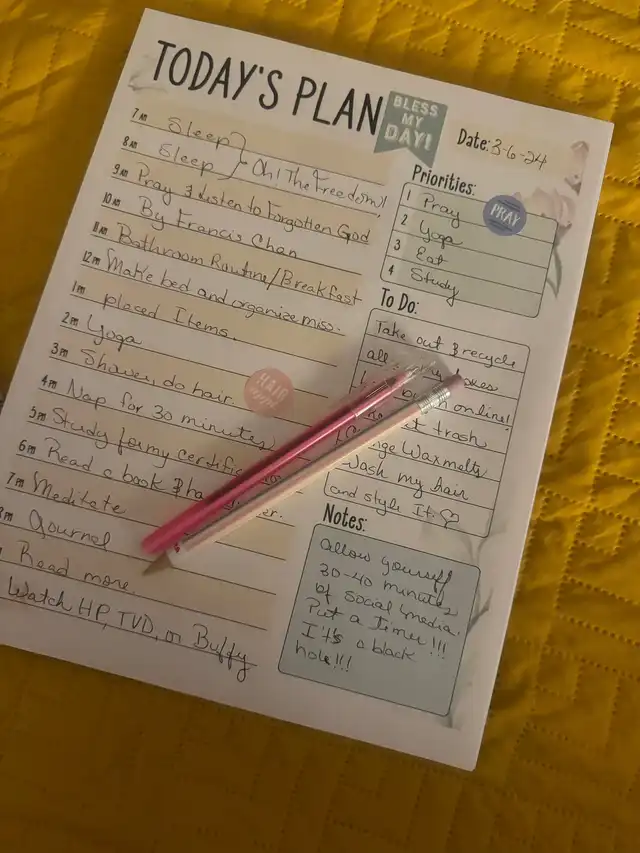 TODAY'S PLAN
BLESS
MY
DAY!
Date: 3-6-24
7 AM Sleep
8 AM Sleep } Oh! The Freedom!
9 AM Pray & Listen to Forgotten God
10 AM By Francis Chan
11 AM Bathroom Routine/Breakfast
12 PM Make bed and organize miss-
1 PM placed Items.
2 PM Yoga
3 PM Shower, do hair
HAIR
4 PM Nap for 30 minutes
5 PM Study for my certific
6 PM Read a book & ha
7 PM Meditate
PM Journal
Read more.
Watch HP, TVD, or Buffy
Priorities:
1 Pray
PRAY
2 Yoga
3 Eat
4 Study
To Do:
Take out & recycle
all
online!
trash
Waxmelts
Wash my hair
and style It. ♡
Notes:
allow yourself
30-40 minutes
of social media.
Put a Timer!!!
It's a black
hole!!!